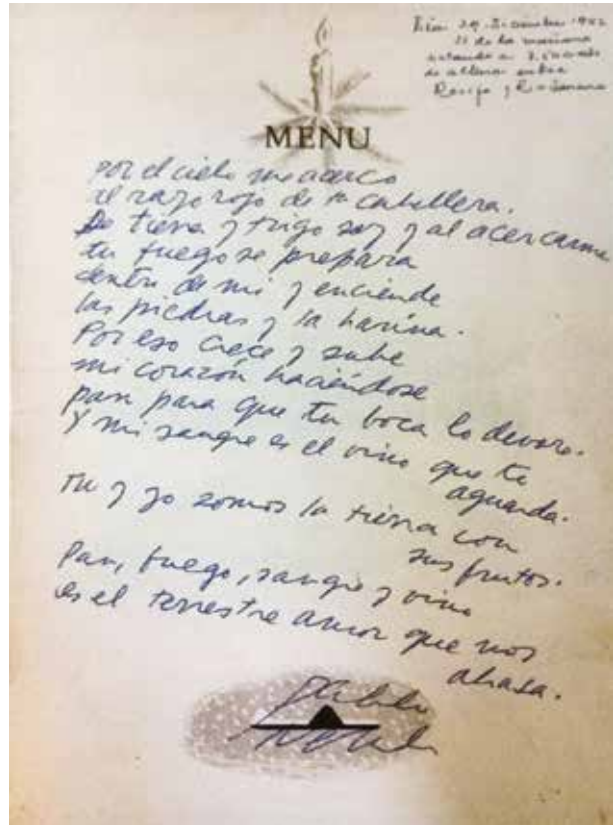 Día 29 Diciembre 1952
11 de la mañana
volando a 3.500 mts
de altura entre
Recife y Rio Janeiro
MENU
Por el cielo me acerco
al rayo rojo de tu cabellera.
De tierra y trigo soy y al acercarme
tu fuego se prepara
dentro de mi y enciende
las piedras y la harina.
Por eso crece y sube
mi corazón haciéndose
pan para que tu boca lo devore.
Y mi sangre es el vino que te
aguarda.
Tu y yo somos la tierra con
sus frutos.
Pan, fuego, sangre y vino
es el terrestre amor que nos
abrasa.
Pablo
Neruda